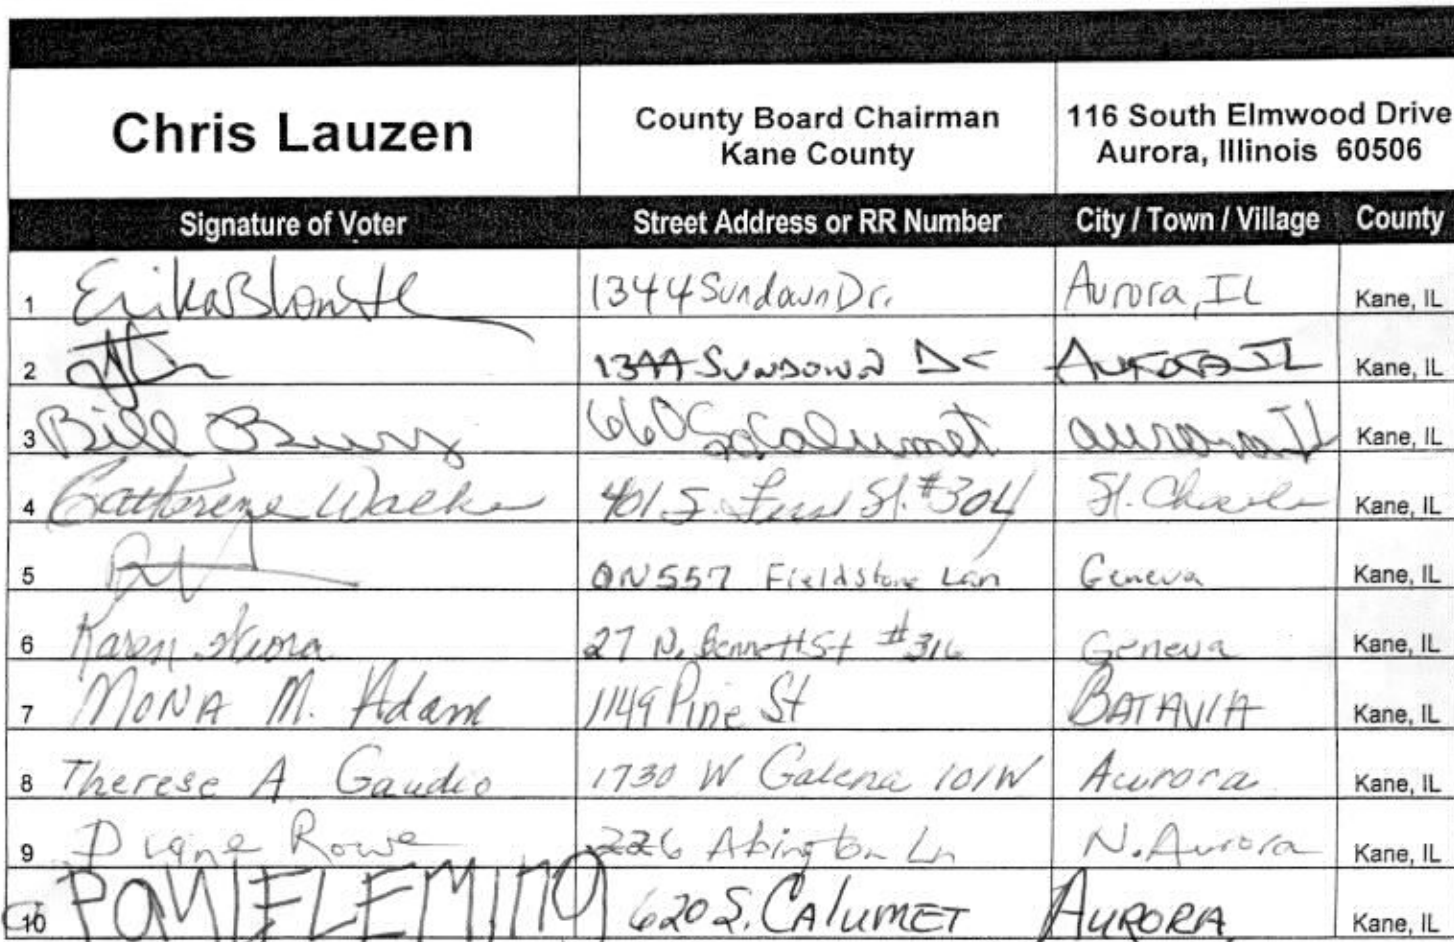 Chris Lauzen County Board Chairman Kane County 116 South Elmwood Drive Aurora, Illinois 60506
Signature of Voter Street Address or RR Number City / Town / Village County
1 Erika 1344 Sundown Dr. Aurora, IL Kane, IL
2 1344 Sundown Dr Aurora IL Kane, IL
3 Bill 660 So Calumet aurora Il Kane, IL
4 Catherine Walker 401 S. First St. #304 St. Charles Kane, IL
5 0N557 Fieldstone Lan Geneva Kane, IL
6 Karen 27 N. Bennett St #316 Geneva Kane, IL
7 MONA M. Adam 1149 Pine St BATAVIA Kane, IL
8 Therese A Gaudio 1730 W Galena 101W Aurora Kane, IL
9 Diane Rowe 226 Abington Ln N. Aurora Kane, IL
10 FLEMING 620 S. CALUMET AURORA Kane, IL